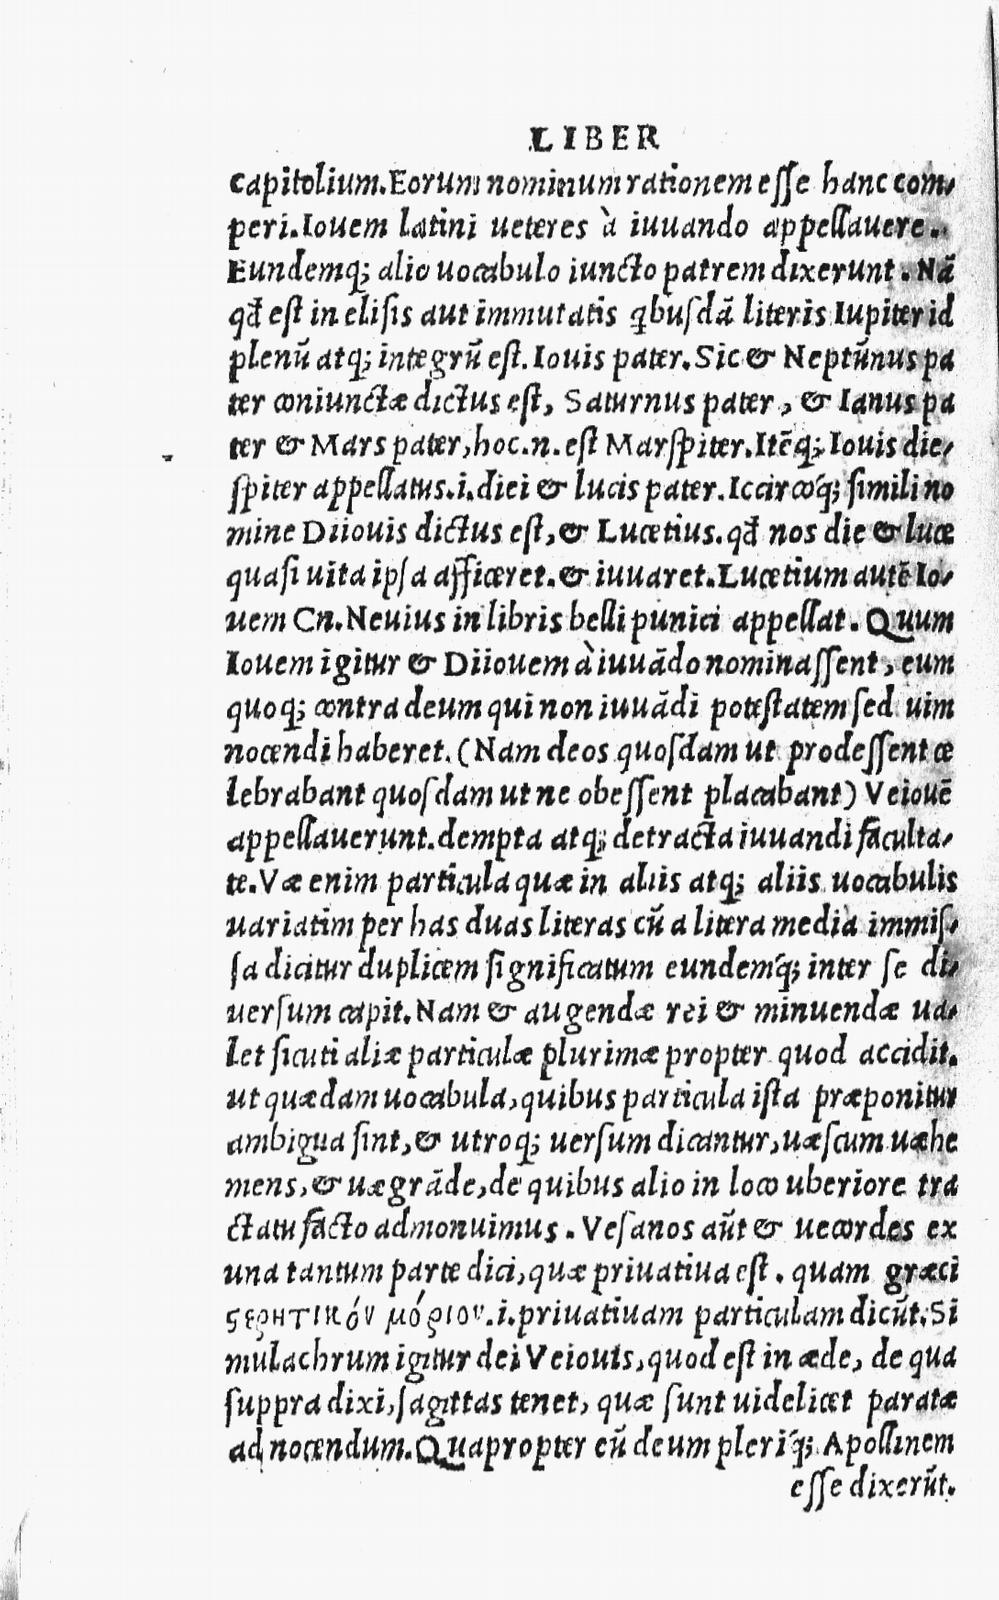 LIBER
capitolium. Eorum nominum rationem esse hanc com-
peri. Iouem latini ueteres à iuuando appellauere.
Eundemq; alio uocabulo iuncto patrem dixerunt. Nã
qđ est in elisis aut immutatis qbusdã literis Iupiter id
plenũ atq; integrũ est. Iouis pater. Sic & Neptũnus pa
ter coniunctæ dictus est, Saturnus pater, & Ianus pa
ter & Mars pater, hoc .n. est Marspiter. Itẽq; Iouis die-
spiter appellatus .i. diei & lucis pater. Iccircoq́; simili no
mine Diiouis dictus est, & Lucetius. qđ nos die & luce
quasi uita ipsa afficeret. & iuuaret. Lucetium autẽ Io-
uem Cn. Neuius in libris belli punici appellat. Quum
Iouem igitur & Diiouem à iuuãdo nominassent, eum
quoq; contra deum qui non iuuãdi potestatem sed uim
nocendi haberet. (Nam deos quosdam ut prodessent ce
lebrabant quosdam ut ne obessent placabant) Veiouẽ
appellauerunt. dempta atq; detracta iuuandi faculta-
te. Væ enim particula quæ in aliis atq; aliis uocabulis
uariatim per has duas literas cũ a litera media immis-
sa dicitur duplicem significatum eundemq́; inter se di-
uersum capit. Nam & augendæ rei & minuendæ ua-
let sicuti aliæ particulæ plurimæ propter quod accidit.
ut quædam uocabula, quibus particula ista præponitur
ambigua sint, & utroq; uersum dicantur, uæscum uæhe
mens, & uægrãde, de quibus alio in loco uberiore tra
ctatu facto admonuimus. Vesanos aũt & uecordes ex
una tantum parte dici, quæ priuatiua est. quam græci
ςερητικόν μόριον .i. priuatiuam particulam dicũt. Si
mulachrum igitur dei Veiouis, quod est in æde, de qua
suppra dixi, sagittas tenet, quæ sunt uidelicet paratæ
ad nocendum. Quapropter eũ deum pleriq́; Apollinem
esse dixerũt.